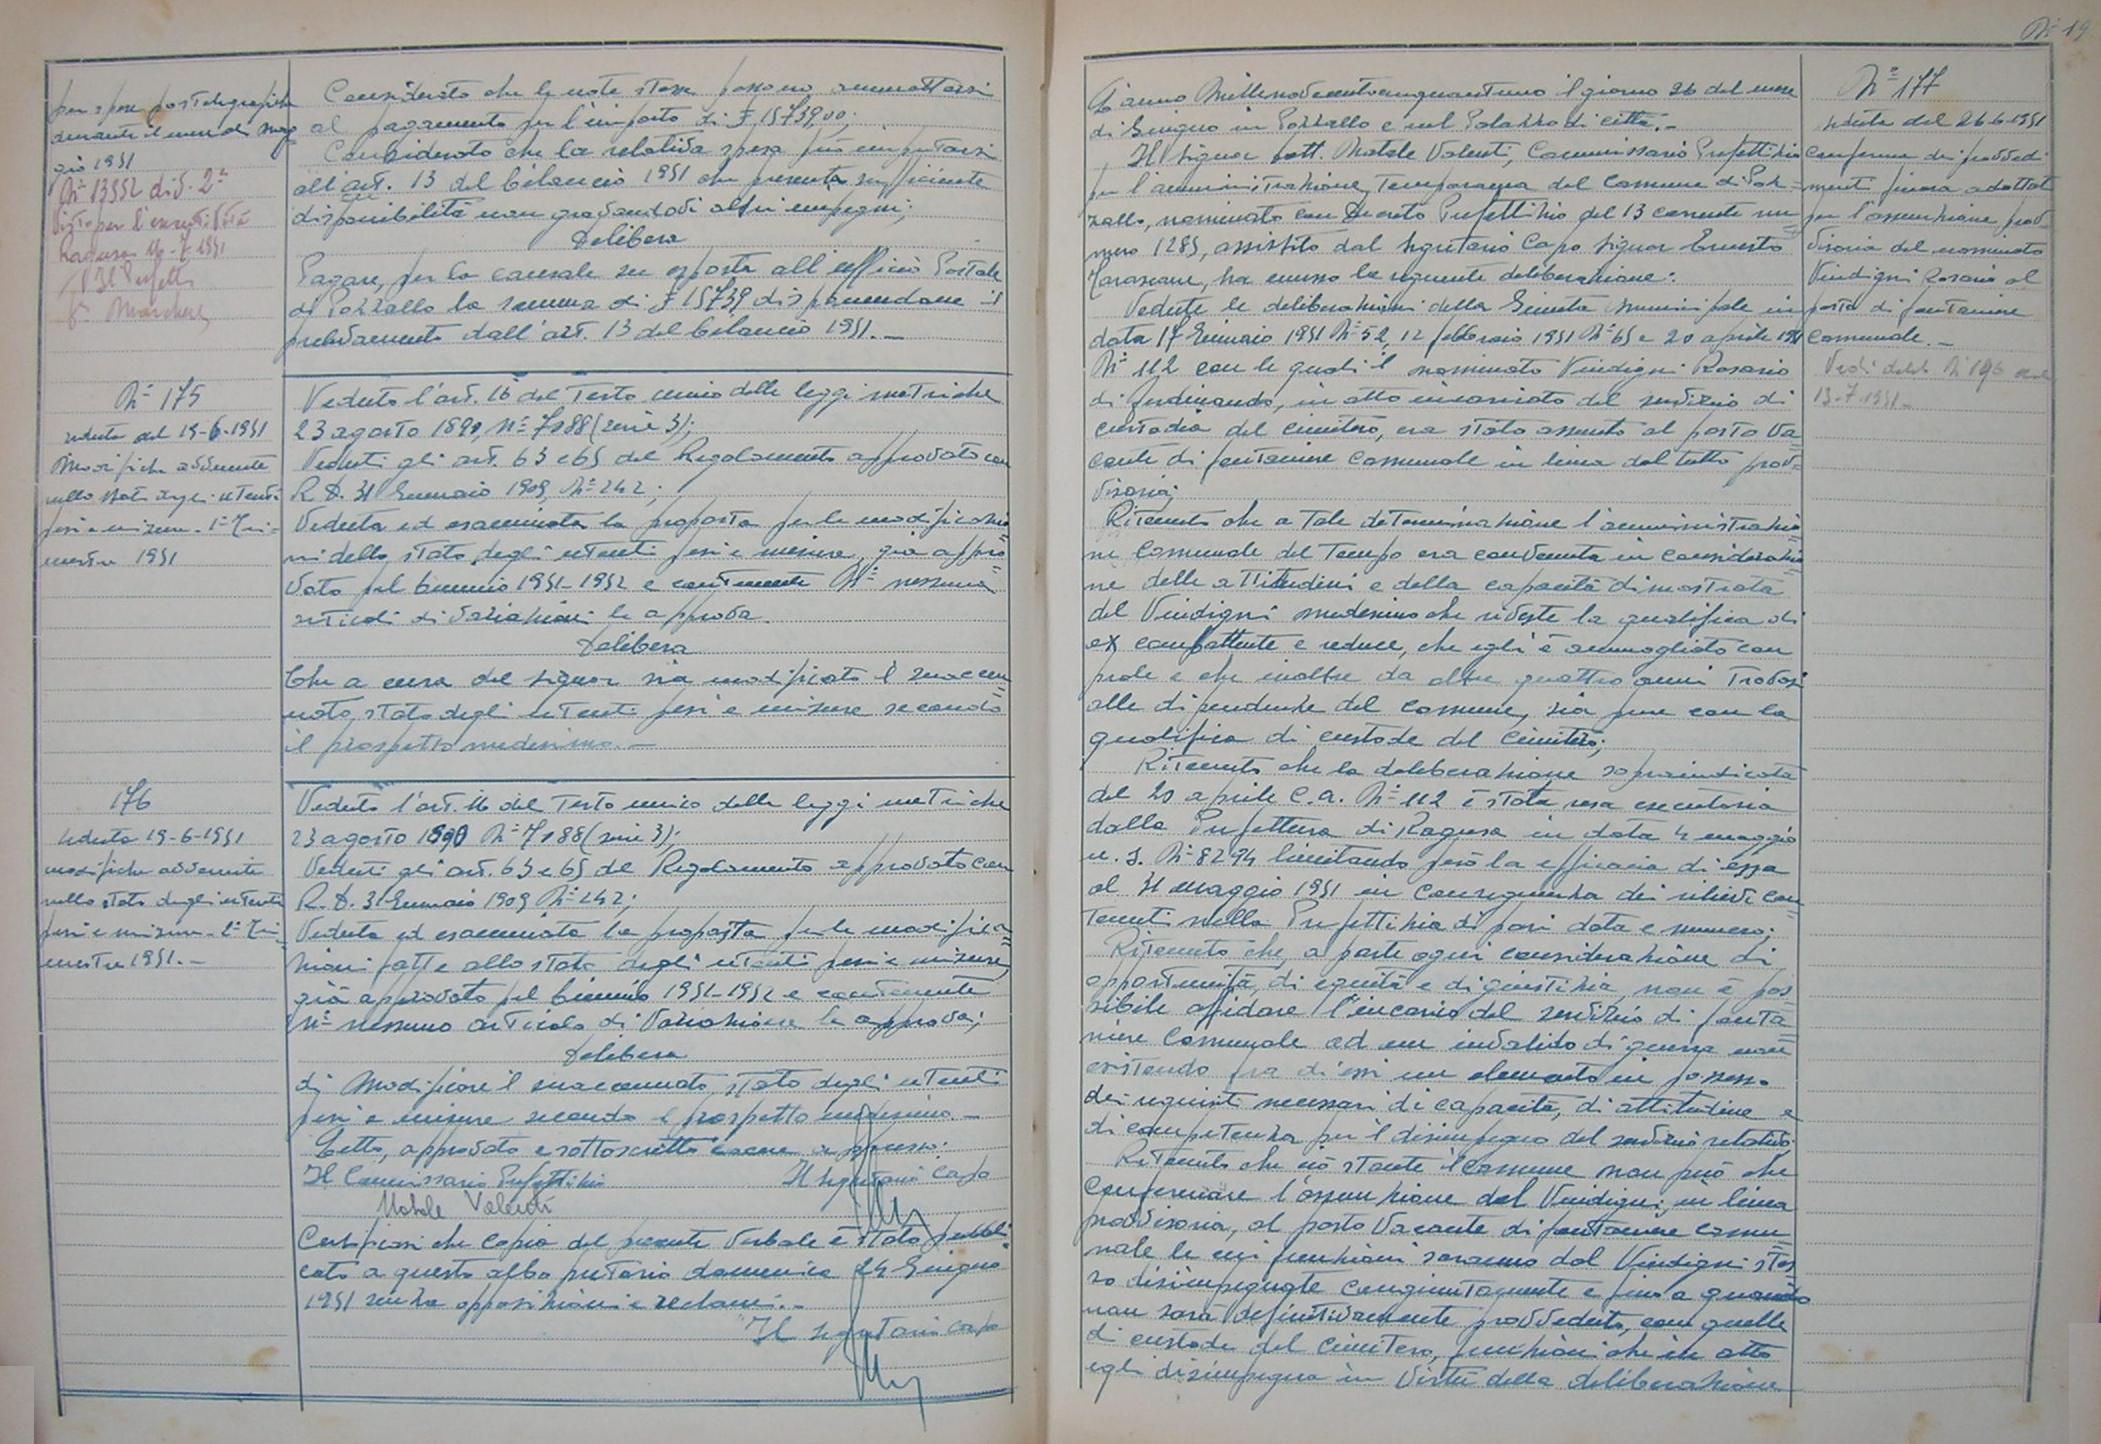 per spese postelegrafiche
durante il mese di mag
gio 1951
N° 13552 div. 2ª
Visto per l'esecutività
Ragusa 16-7-1951
Il Prefetto
Considerato che le note stesse possono ammettersi
al pagamento per l'importo di £ 15739,00;
Considerato che la relativa spesa può imputarsi
all'art. 13 del bilancio 1951 che presenta sufficiente
disponibilità non gravandovi altri impegni;
Delibera
Pagare, per la causale su esposta all'ufficio Postale
di Pozzallo la somma di £ 15739 disponendone il
prelevamento dall'art. 13 del bilancio 1951.—
N° 175
seduta del 19-6-1951
Modifiche avvenute
nello stato degli utenti
pesi e misure - 1° Tri-
mestre 1951
Veduto l'art. 16 del Testo unico delle leggi metriche
23 agosto 1890, N° 7088 (serie 3);
Veduti gli art. 63 e 65 del Regolamento approvato con
R.D. 31 Gennaio 1909, N° 242;
Veduta ed esaminata la proposta per le modificazio=
ni dello stato degli utenti pesi e misure, già appro=
vato pel biennio 1951-1952 e contenente N° nessuno
articoli di variazioni la approva.
Delibera
Che a cura del signor sia modificato il suaccen=
nato stato degli utenti pesi e misure secondo
il prospetto medesimo.—
176
seduta 19-6-1951
modifiche avvenute
nello stato degli utenti
pesi e misure - 2° Tri-
mestre 1951.—
Veduto l'art. 16 del Testo unico delle leggi metriche
23 agosto 1890 N° 7088 (serie 3);
Veduti gli art. 63 e 65 del Regolamento approvato con
R.D. 31 Gennaio 1909 N° 242;
Veduta ed esaminata la proposta per le modifica=
zioni fatte allo stato degli utenti pesi e misure,
già approvato pel biennio 1951-1952 e contenente
N° nessuno articolo di variazione la approva;
Delibera
di modificare il suaccennato stato degli utenti
pesi e misure secondo il prospetto medesimo.—
Letto, approvato e sottoscritto come appresso:
Il Commissario Prefettizio Il Segretario Capo
Natale Valenti
Certificasi che copia del presente verbale è stata pubbli=
cata a questo albo pretorio domenica 24 Giugno
1951 senza opposizioni e reclami.—
Il Segretario Capo
N° 19
L'anno Millenovecentocinquantuno il giorno 26 del mese
di Giugno in Pozzallo e nel Palazzo di città.—
Il Signor Dott. Natale Valenti, Commissario Prefettizio
per l'amministrazione temporanea del Comune di Poz-
zallo, nominato con Decreto Prefettizio del 13 corrente nu
mero 1285, assistito dal Segretario Capo Signor Ernesto
ha emesso la seguente deliberazione:
Vedute le deliberazioni della Giunta Municipale in
data 17 Gennaio 1951 N° 52, 12 febbraio 1951 N° 65 e 20 aprile 1951
N° 112 con le quali il nominato Vindigni Rosario
di Ferdinando, in atto incaricato del servizio di
custodia del cimitero, era stato assunto al posto va
cante di fontaniere Comunale in linea del tutto prov-
visoria;
Ritenuto che a tale determinazione l'amministrazio
ne Comunale del tempo era convenuta in considerazio
ne delle attitudini e della capacità dimostrata
del Vindigni medesimo che riveste la qualifica di
ex combattente e reduce, che egli è ammogliato con
prole e che inoltre da oltre quattro anni trovasi
alle dipendenze del Comune, sia pure con la
qualifica di custode del Cimitero;
Ritenuto che la deliberazione sopraindicata
del 20 aprile c.a. N° 112 è stata resa esecutoria
dalla Prefettura di Ragusa in data 4 maggio
u.s. N° 8294 limitando però la efficacia di essa
al 31 Maggio 1951 in conseguenza dei rilievi con
tenuti nella Prefettizia di pari data e numero;
Ritenuto che, a parte ogni considerazione di
opportunità, di equità e di giustizia, non è pos=
sibile affidare l'incarico del servizio di fonta=
niere Comunale ad un invalido di guerra non
esistendo fra di essi un elemento in possesso
dei requisiti necessari di capacità, di attitudine e
di competenza per il disimpegno del servizio relativo.
Ritenuto che ciò stante il Comune non può che
confermare l'assunzione del Vindigni, in linea
provvisoria, al posto vacante di fontaniere comu=
nale le cui funzioni saranno dal Vindigni stes
so disimpegnate congiuntamente e fino a quando
non sarà definitivamente provveduto, con quelle
di custode del Cimitero, funzioni che in atto
egli disimpegna in virtù della deliberazione
N° 177
seduta del 26-6-1951
Conferma dei provvedi
menti finora adottati
per l'assunzione prov-
visoria del nominato
Vindigni Rosario al
posto di fontaniere
comunale.—
Vedi delib. N° 196 del
13-7-1951.—